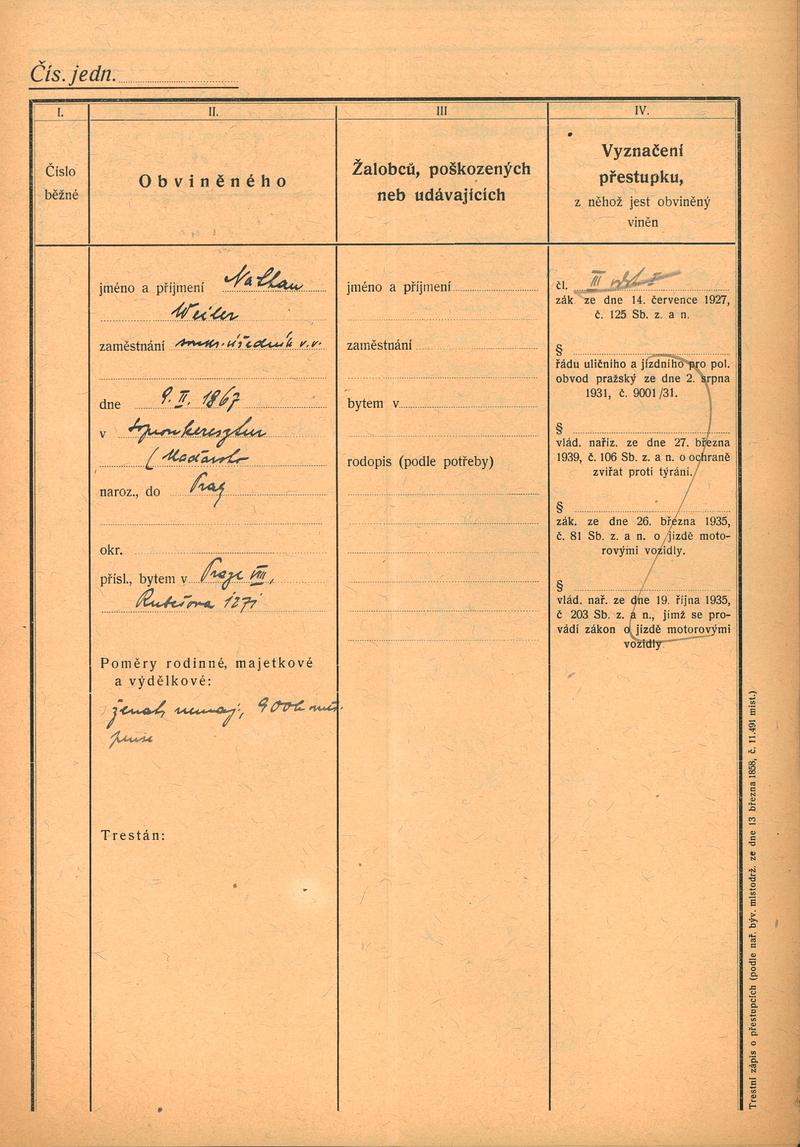 Čís. jedn.
I.
II.
III
IV.
Číslo
běžné
Obviněného
Žalobců, poškozených
neb udávajících
Vyznačení
přestupku,
z něhož jest obviněný
viněn
jméno a příjmení Nathan
Weiler
zaměstnání soukr. úředník v.v.
dne 9. II. 1867
v Sopronkeresztur
(Maďarsko
naroz., do Prag
okr.
přísl., bytem v Praze VIII,
Rubešova 127
Poměry rodinné, majetkové
a výdělkové:
ženat, nemaj., 900 měs.
pense
Trestán:
jméno a příjmení
zaměstnání
bytem v
rodopis (podle potřeby)
čl. III
zák ze dne 14. července 1927,
č. 125 Sb. z. a n.
§
řádu uličního a jízdního pro pol.
obvod pražský ze dne 2. srpna
1931, č. 9001/31.
§
vlád. naříz. ze dne 27. března
1939, č. 106 Sb. z. a n. o ochraně
zvířat proti týrání.
§
zák. ze dne 26. března 1935,
č. 81 Sb. z. a n. o jízdě moto-
rovými vozidly.
§
vlád. nař. ze dne 19. října 1935,
č 203 Sb. z. a n., jímž se pro-
vádí zákon o jízdě motorovými
vozidly
Trestní zápis o přestupcích (podle nař. býv. místodrž. ze dne 13 března 1858, č. 11.491 míst.)